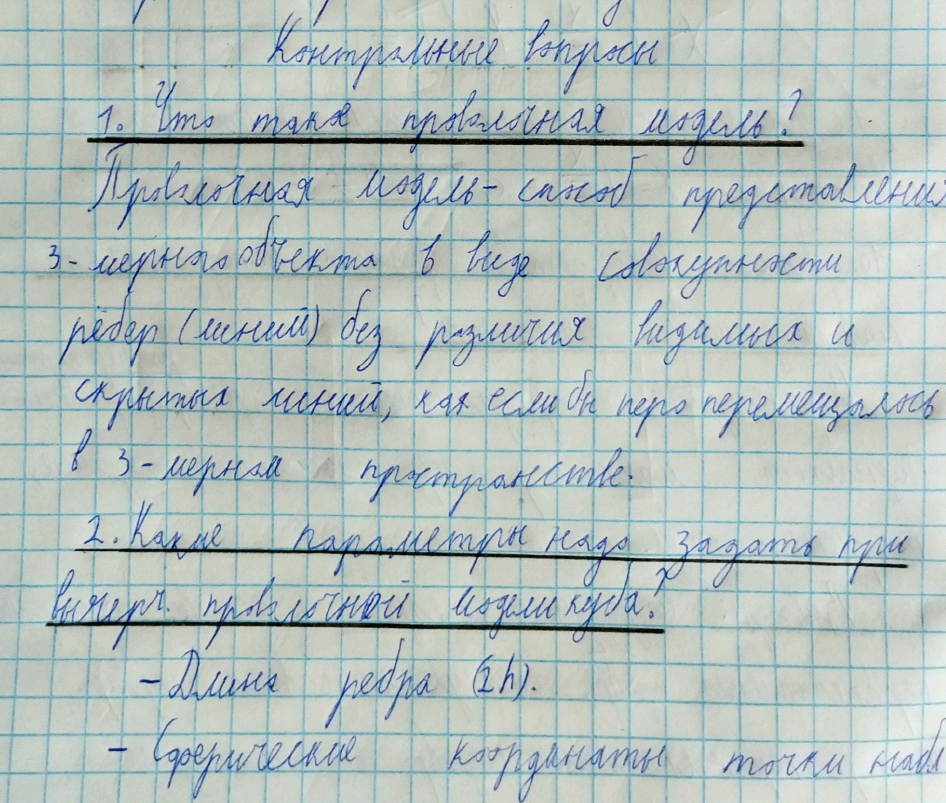 Контрольные вопросы
1. Что такое проволочная модель?
Проволочная модель - способ представления
3-мерного объекта в виде совокупности
рёбер (линий) без различия видимых и
скрытых линий, как если бы перо перемещалось
в 3-мерном пространстве.
2. Какие параметры надо задать при
вычерч. проволочной модели куба?
- Длина ребра (2h).
- Сферические координаты точки набл